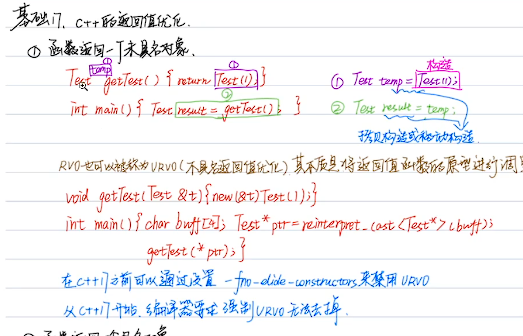 基础17. C++的返回值优化.
① 函数返回一个未具名对象.
temp ① ① 构造
Test getTest() { return Test(1); } ① Test temp = Test(1);
②
int main() { Test result = getTest(); } ② Test result = temp;
拷贝构造或移动构造.
RVO也可以被称为URVO(不具名返回值优化) 其本质是将返回值函数的原型进行调
void getTest(Test &t){new(&t)Test(1);}
int main(){char buff[4]; Test*ptr=reinterpret_cast<Test*>(buff);
getTest(*ptr);}
在C++17之前可以通过设置 -fno-elide-constructors来禁用URVO
从C++17开始,编译器要求强制URVO无法去掉.